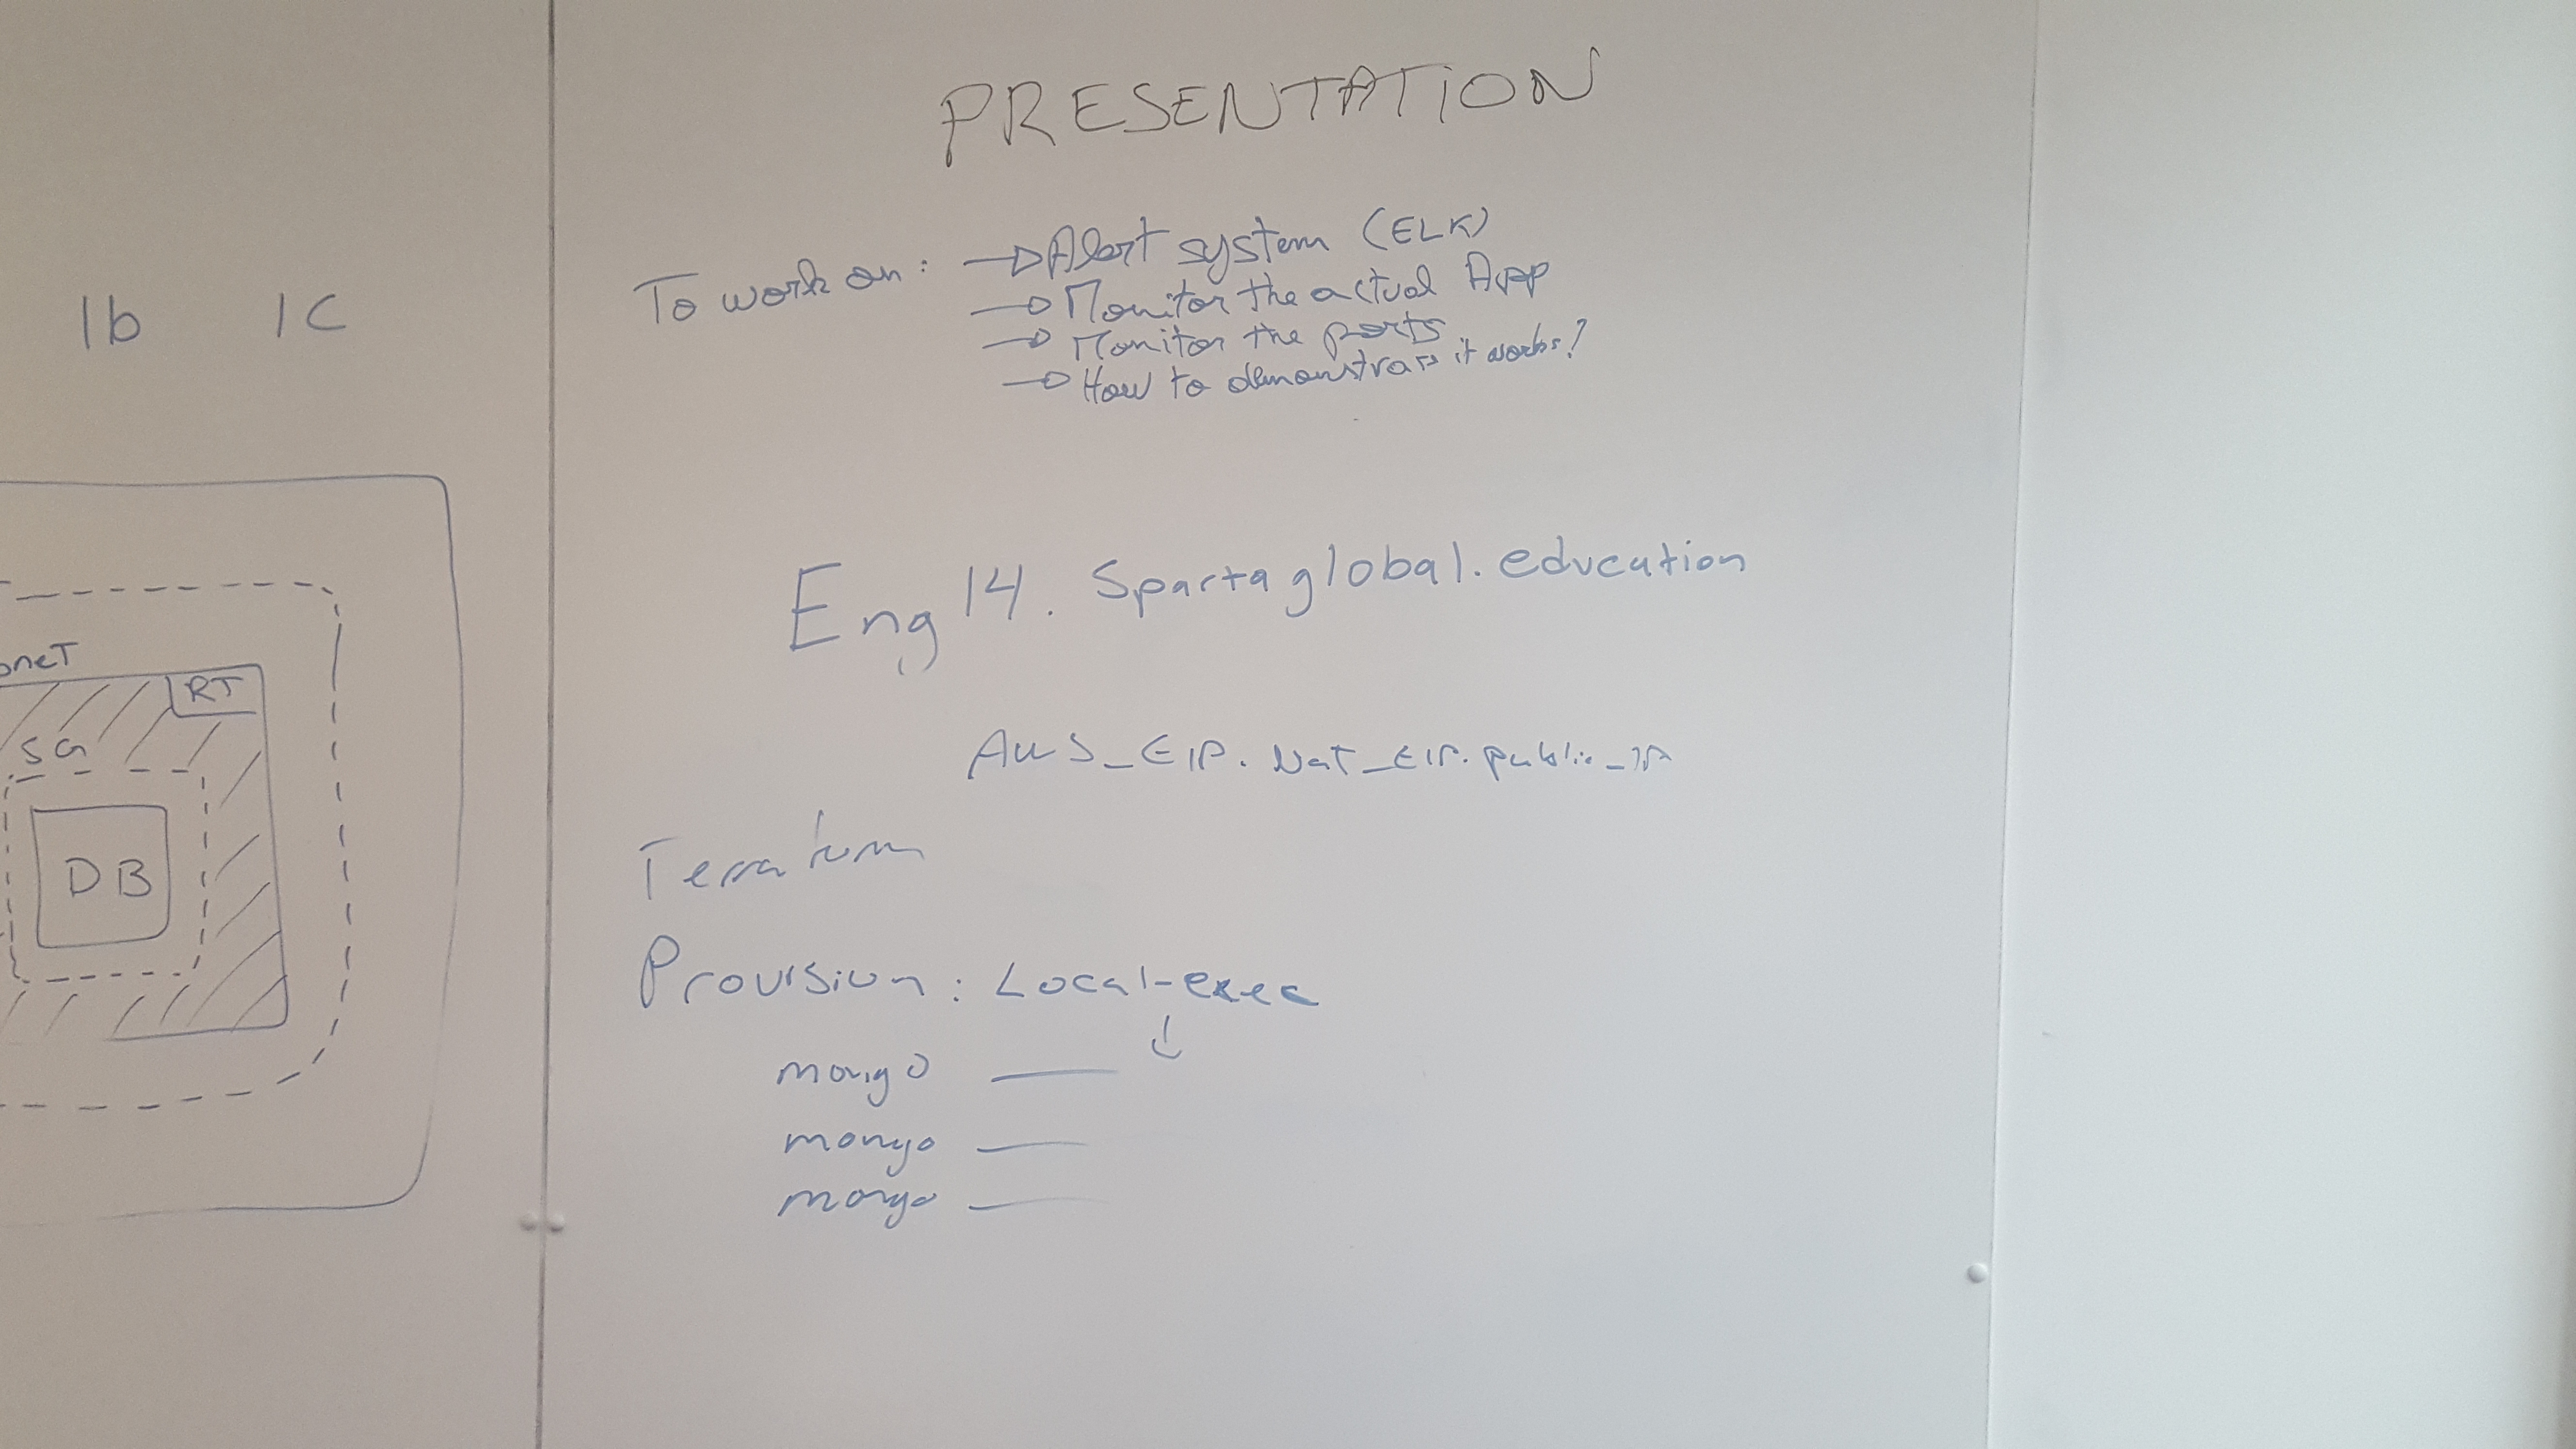 PRESENTATION
To work on: → Alert system (ELK)
→ Monitor the actual App
→ Monitor the ports
→ How to demonstrate it works?
1b 1C
Eng14.Spartaglobal.education
bnet
RT
SG
DB
AWS_EIP.Nat_EIP.public_IP
Terraform
Provision: Local-exec
mongo
mongo
mongo